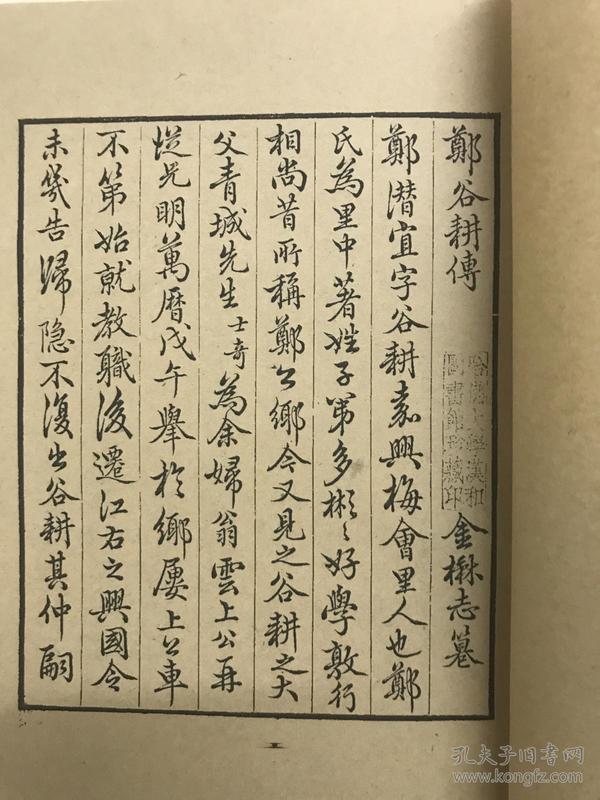 鄭谷耕傳
哈佛大學漢和
圖書館珍藏印
金楙志篹
鄭潛宜字谷耕嘉興梅會里人也鄭
氏為里中著姓子第多彬〻好學敦行
相尚昔所稱鄭公鄉今又見之谷耕之大
父青城先生士奇為余婦翁雲上公再
從兄明萬曆戊午舉於鄉屢上公車
不第始就教職後遷江右之興國令
未幾告歸隐不復出谷耕其仲嗣
孔夫子旧书网
www.kongfz.com